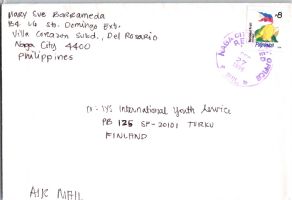 MARY SUE BARRAMEDA
B4 L6 Sto. Domingo Ext.
Villa Corazon Subd., Del Rosario
Naga City 4400
Philippines
to: IYS International Youth Service
PB 125 SF-20101 TURKU
FINLAND
AIR MAIL